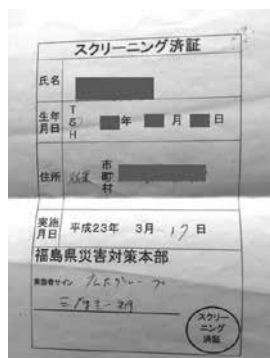 スクリーニング済証
氏名
生年月日 T S H 年 月 日
住所 市町村
実施月日 平成23年 3月 17日
福島県災害対策本部
実施者サイン
スクリーニング済